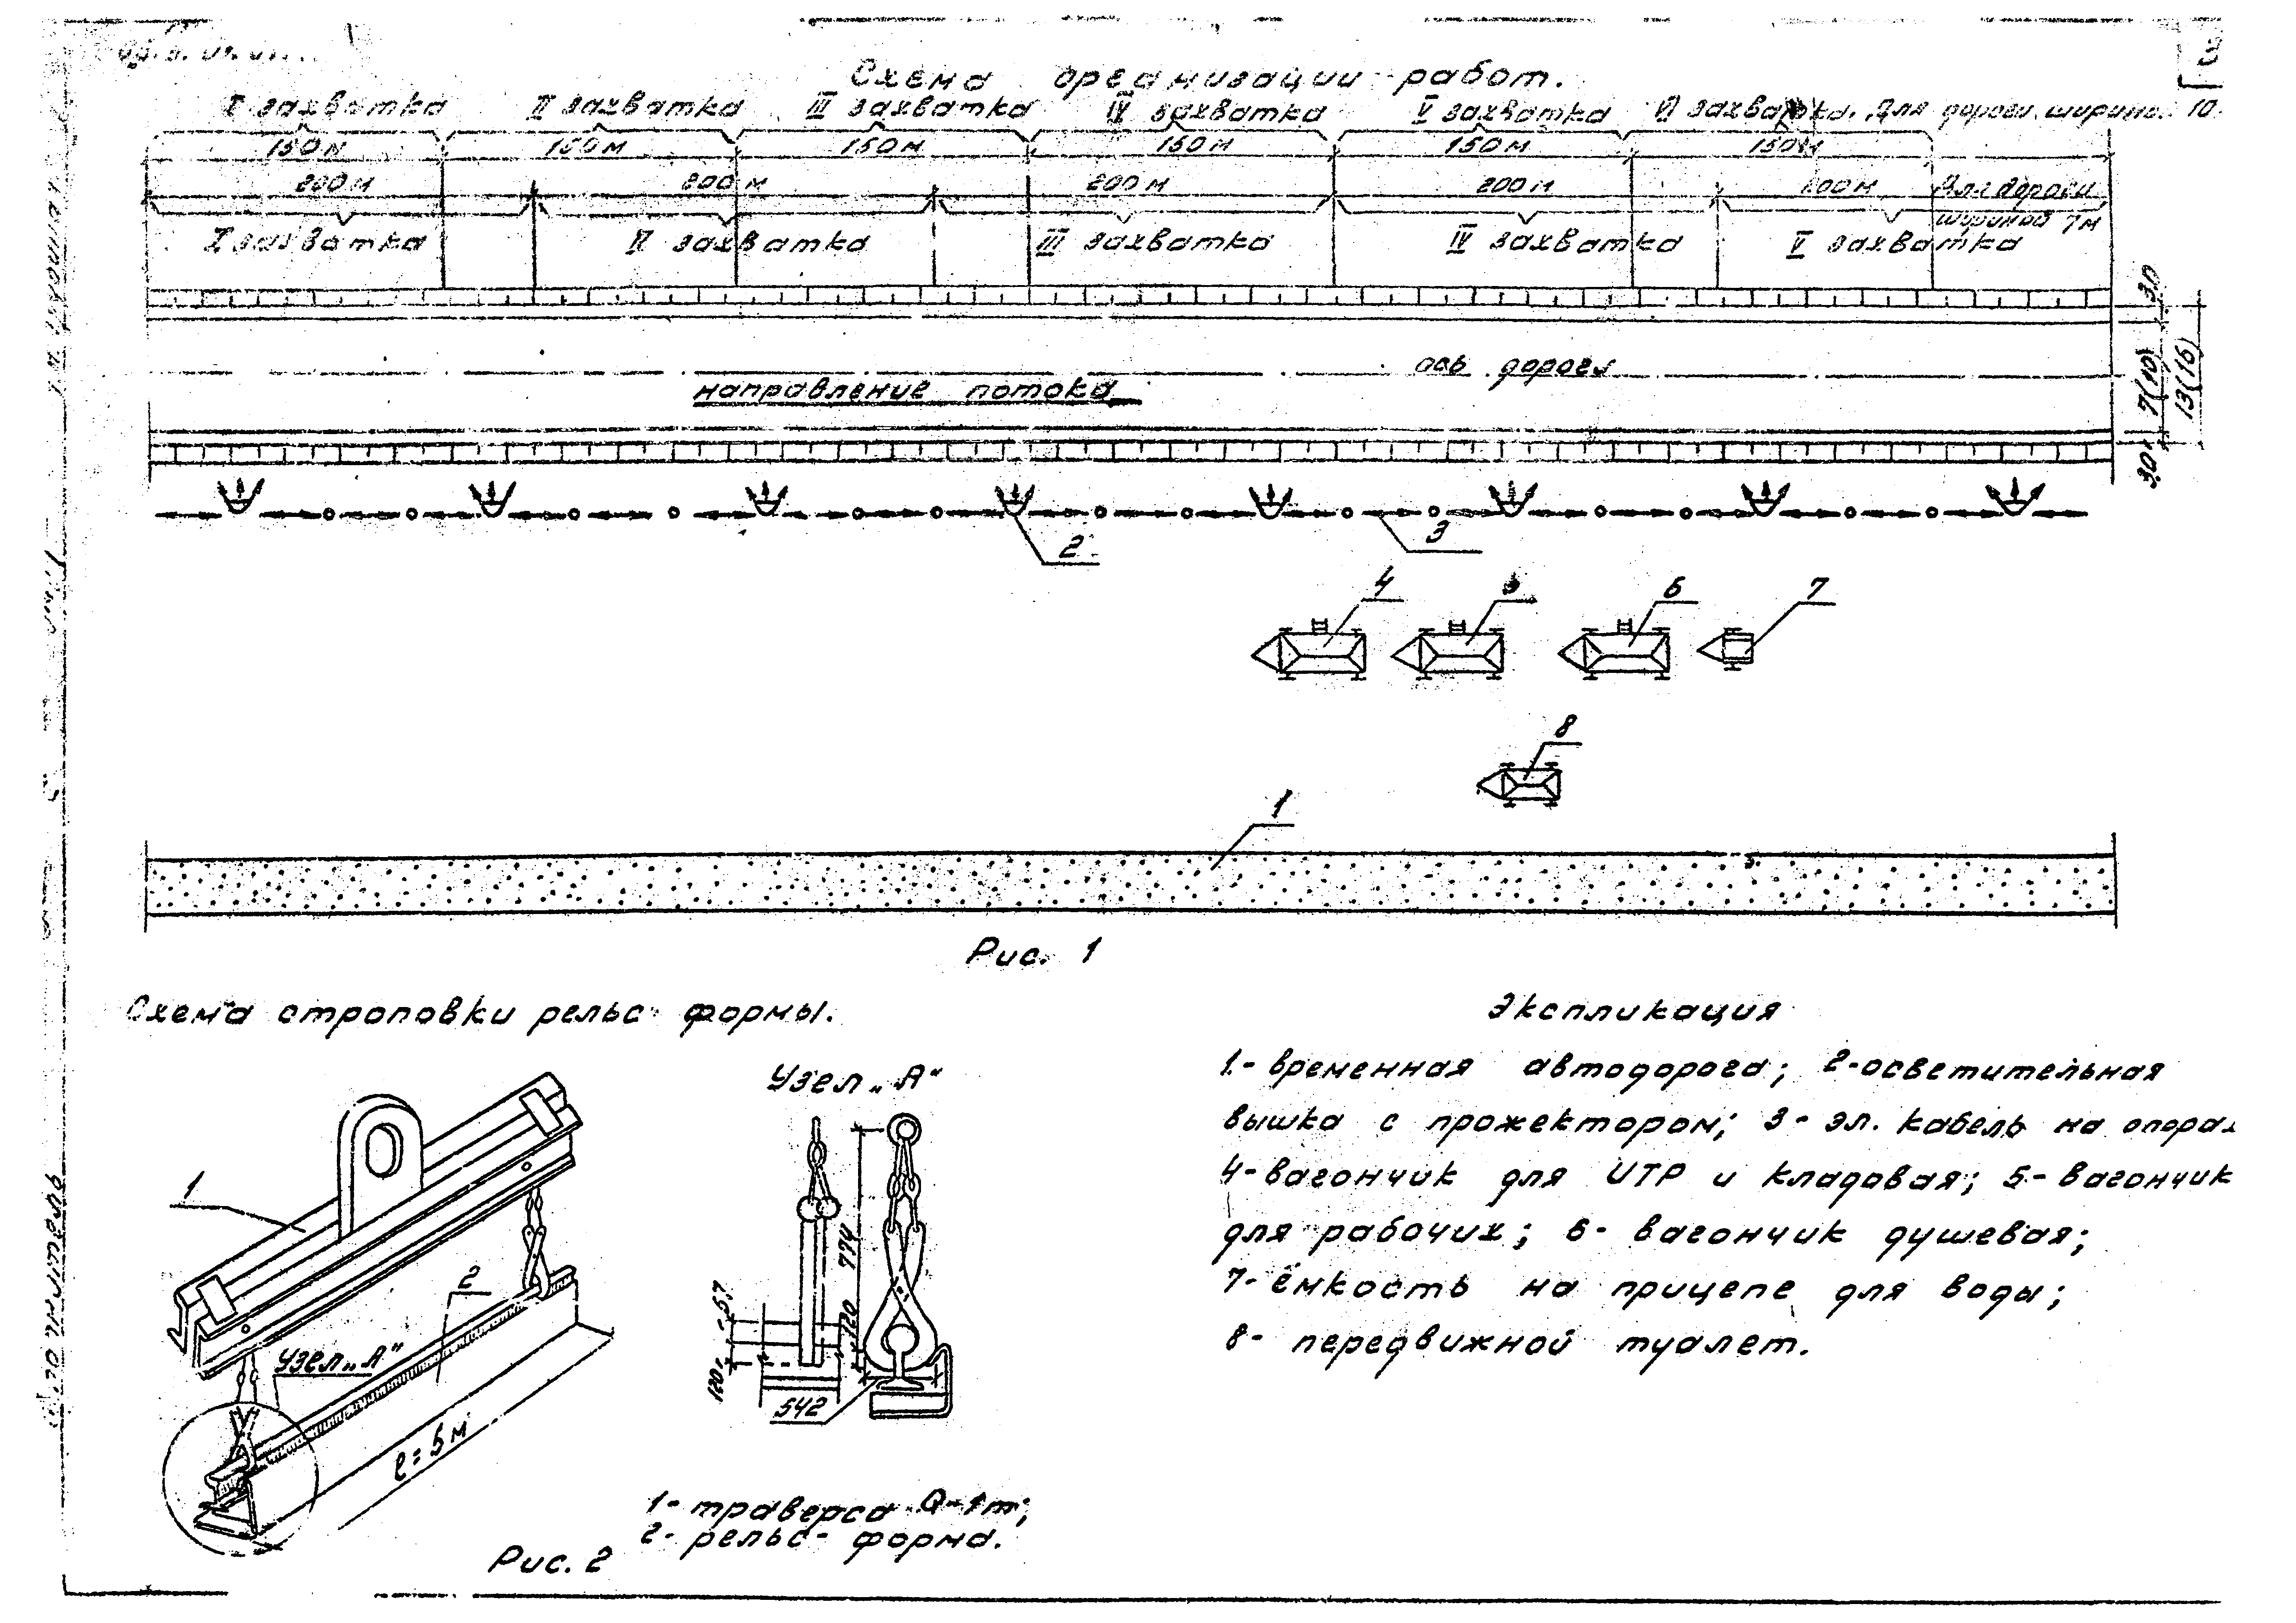 3
Схема организации работ.
I захватка II захватка III захватка IV захватка V захватка VI захватка. Для дороги ширино. 10.
150м 150м 150м 150м 150м 150м
200м 200м 200м 200м 200м Для дороги
шириной 7м
I захватка II захватка III захватка IV захватка V захватка
3,0
ось дороги
направление потока
7(10)
13(16)
3,0
2
3
4 5 6 7
8
1
Рис. 1
Схема строповки рельс-формы.
Узел „А“
1
2
Узел „А“
ℓ=5м
774
120
67
120
542
1- траверса Q-1т;
2- рельс-форма.
Рис. 2
Экспликация
1.- временная автодорога; 2-осветительная
вышка с прожектором; 3- эл. кабель на опорах
4-вагончик для ИТР и кладовая; 5- вагончик
для рабочих; 6- вагончик душевая;
7- ёмкость на прицепе для воды;
8- передвижной туалет.